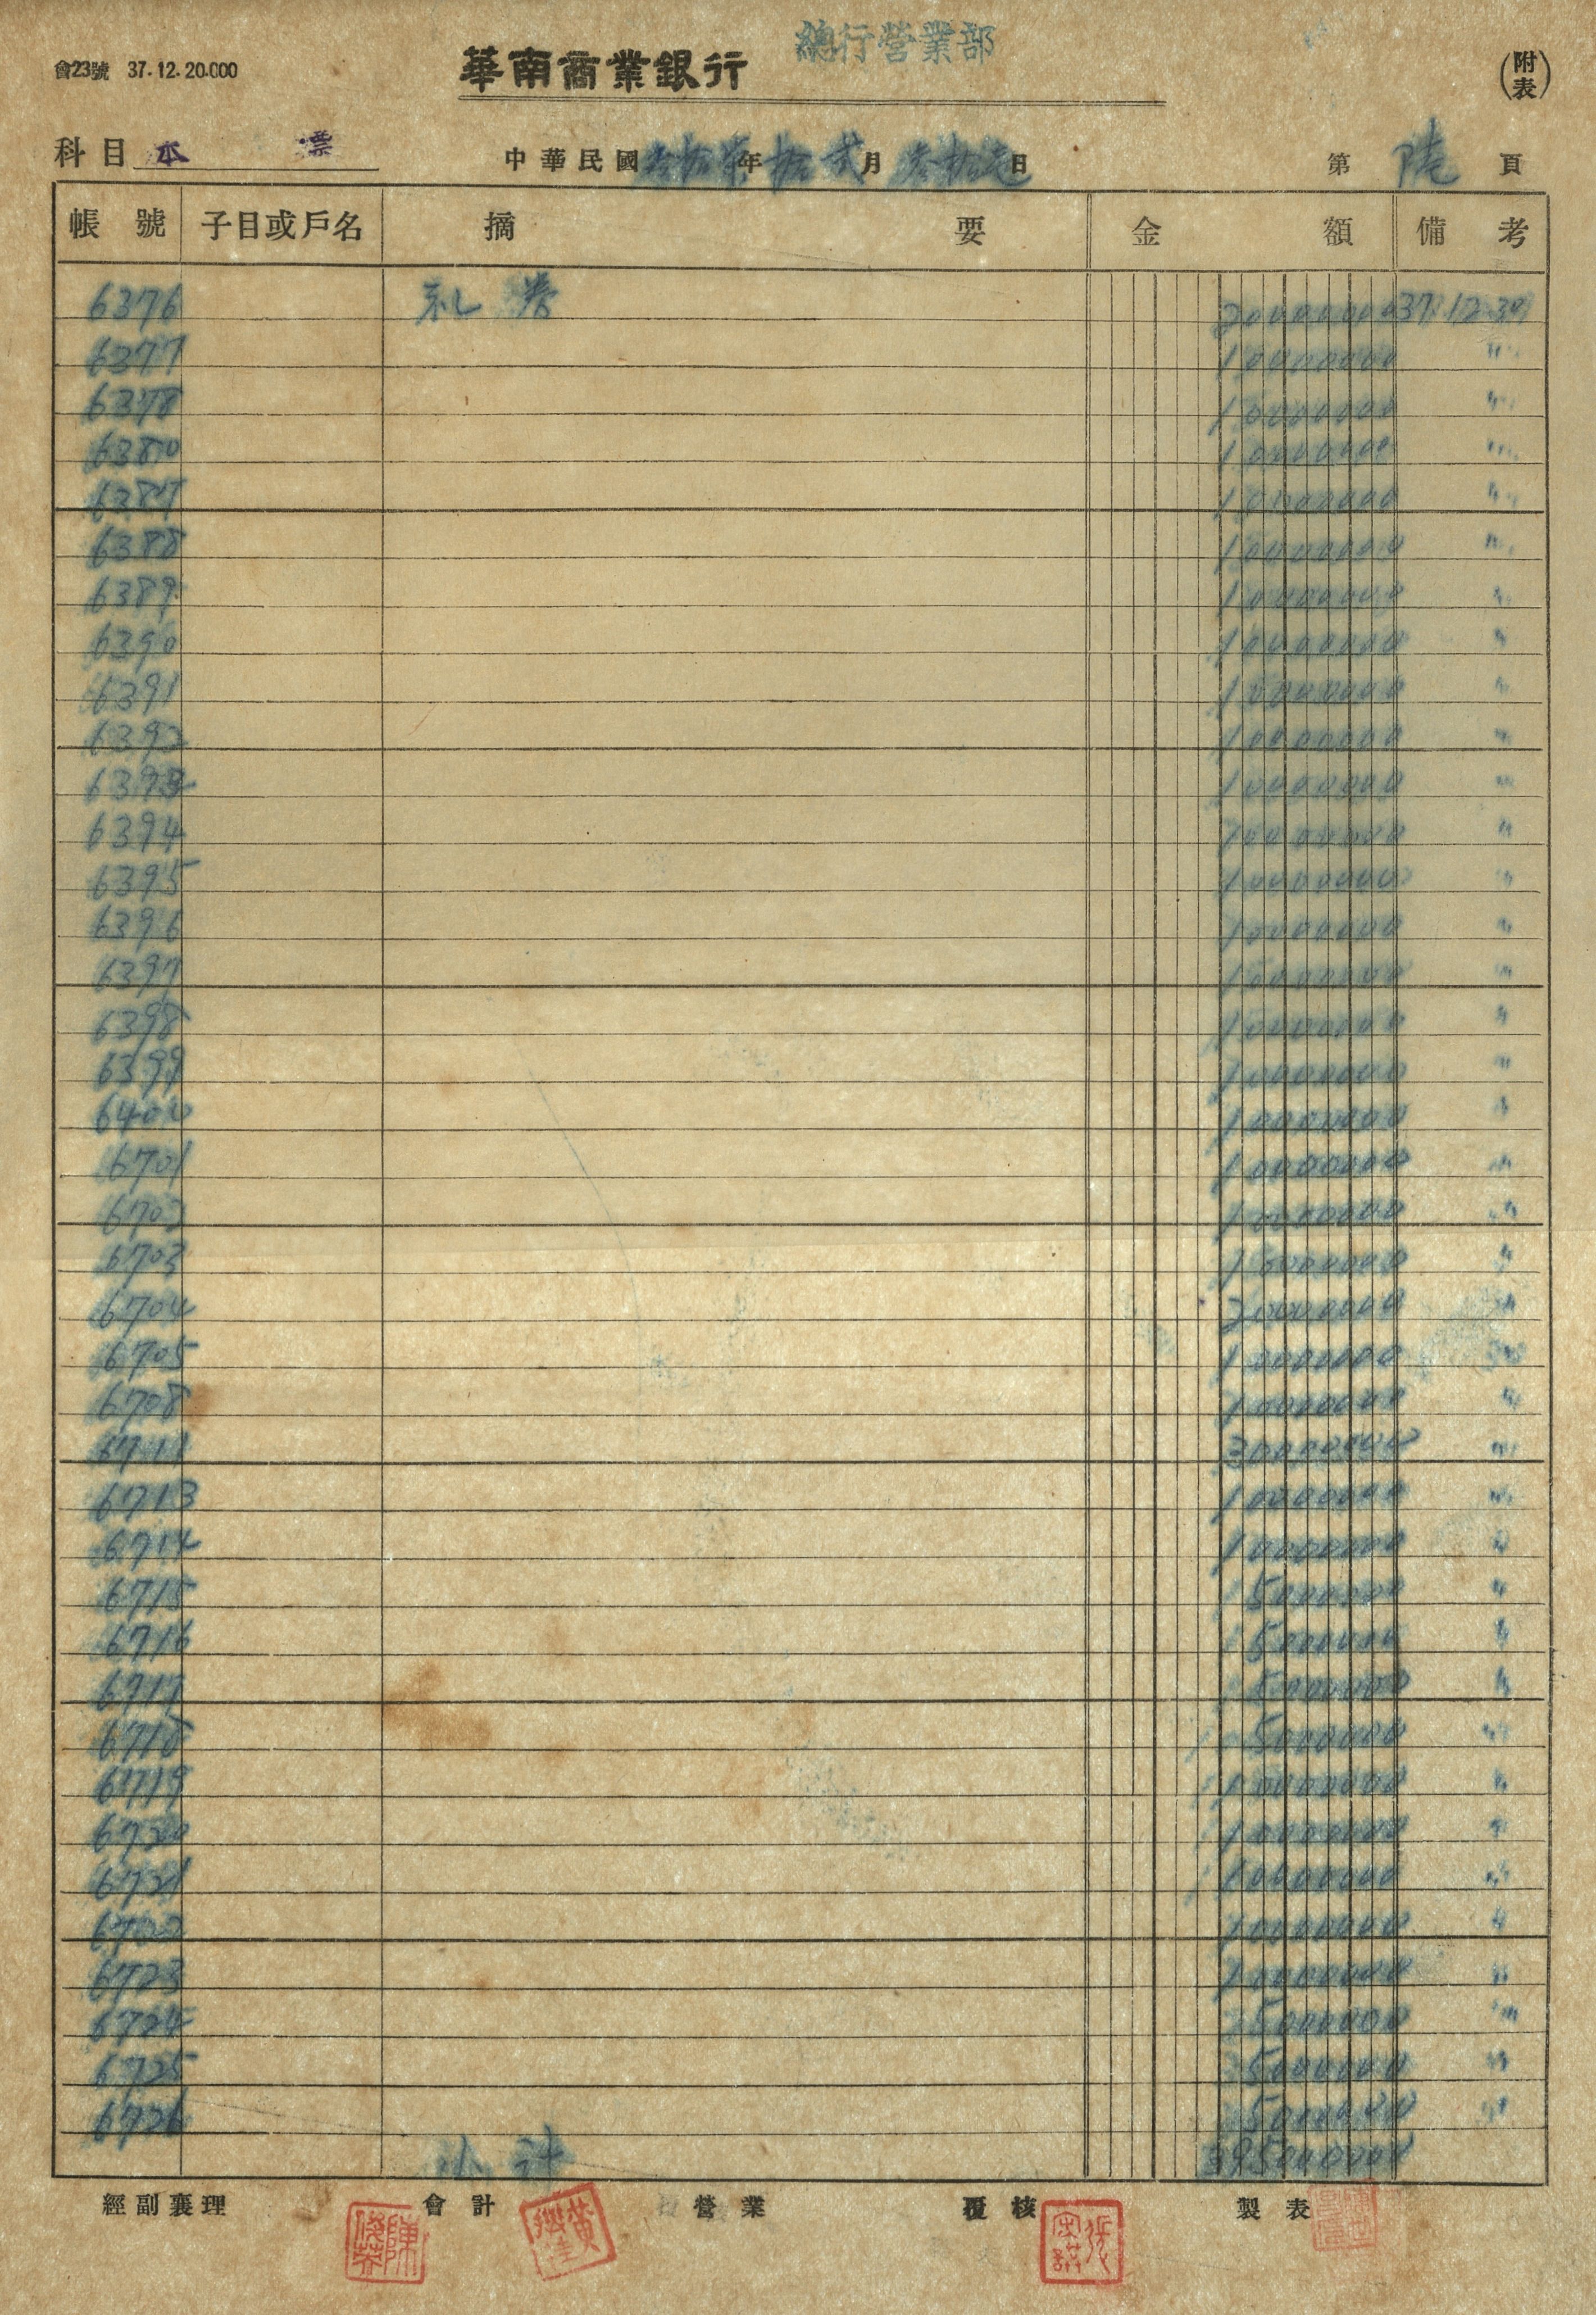 總行營業部
會23號 37.12.20.000 華南商業銀行 (附表)
科目 本票 中華民國叁拾柒年拾貳月叁拾壱日 第陸頁
帳號 子目或戶名 摘要 金額 備考
6376 札 券 20000000 37.12.30
6377 10000000 〃
6378 10000000 〃
6380 10000000 〃
6387 10000000 〃
6388 10000000 〃
6389 10000000 〃
6390 10000000 〃
6391 10000000 〃
6392 10000000 〃
6393 10000000 〃
6394 10000000 〃
6395 10000000 〃
6396 10000000 〃
6397 10000000 〃
6398 10000000 〃
6399 10000000 〃
6400 10000000 〃
6701 10000000 〃
6702 10000000 〃
6703 10000000 〃
6704 20000000 〃
6705 10000000 〃
6708 10000000 〃
6711 30000000 〃
6713 10000000 〃
6714 10000000 〃
6715 5000000 〃
6716 5000000 〃
6717 5000000 〃
6718 5000000 〃
6719 10000000 〃
6720 10000000 〃
6721 10000000 〃
6722 10000000 〃
6723 10000000 〃
6724 5000000 〃
6725 5000000 〃
6726 5000000 〃
小計 395000000
經副襄理 會計 營業 覆核 製表